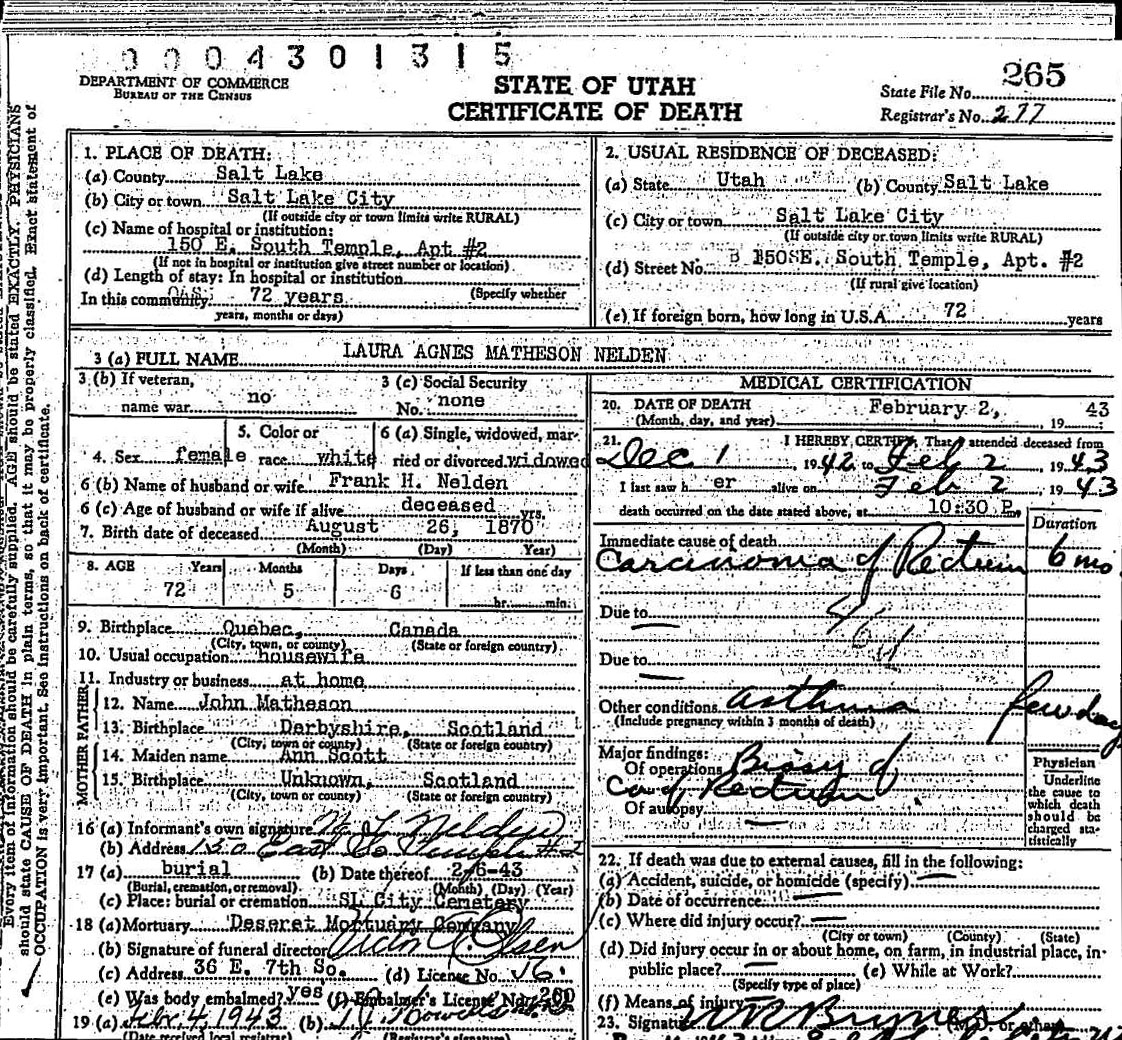 0 0 0 4 3 0 1 3 1 5
DEPARTMENT OF COMMERCE
BUREAU OF THE CENSUS
STATE OF UTAH
CERTIFICATE OF DEATH
265
State File No.
Registrar's No. 277
Every item of information should be carefully supplied. AGE should be stated EXACTLY. PHYSICIANS
should state CAUSE OF DEATH in plain terms, so that it may be properly classified. Exact statement of
OCCUPATION is very important. See instructions on back of certificate.
1. PLACE OF DEATH:
(a) County Salt Lake
(b) City or town Salt Lake City
(If outside city or town limits write RURAL)
(c) Name of hospital or institution:
150 E. South Temple, Apt #2
(If not in hospital or institution give street number or location)
(d) Length of stay: In hospital or institution
(Specify whether
In this community 72 years
years, months or days)
2. USUAL RESIDENCE OF DECEASED:
(a) State Utah (b) County Salt Lake
(c) City or town Salt Lake City
(If outside city or town limits write RURAL)
(d) Street No. 150 E. South Temple, Apt. #2
(If rural give location)
(e) If foreign born, how long in U.S.A. 72 years
3 (a) FULL NAME LAURA AGNES MATHESON NELDEN
3 (b) If veteran, name war no
3 (c) Social Security No. none
4. Sex female
5. Color or race white
6 (a) Single, widowed, married or divorced widowed
6 (b) Name of husband or wife Frank H. Nelden
6 (c) Age of husband or wife if alive deceased yrs.
7. Birth date of deceased August 26, 1870
(Month) (Day) Year)
8. AGE Years Months Days If less than one day
72 5 6 hr. min.
9. Birthplace Quebec, Canada
(City, town, or county) (State or foreign country)
10. Usual occupation housewife
11. Industry or business at home
FATHER
12. Name John Matheson
13. Birthplace Derbyshire, Scotland
(City, town or county) (State or foreign country)
MOTHER
14. Maiden name Ann Scott
15. Birthplace Unknown, Scotland
(City, town or county) (State or foreign country)
16 (a) Informant's own signature Nelden
(b) Address 150 East So Temple #2
17 (a) burial (b) Date thereof 2-6-43
(Burial, cremation, or removal) (Month) (Day) (Year)
(c) Place: burial or cremation SL City Cemetery
18 (a) Mortuary Deseret Mortuary Company
(b) Signature of funeral director Victor Olsen
(c) Address 36 E. 7th So. (d) License No. 16
(e) Was body embalmed? yes (f) Embalmer's License No. 260
19 (a) Febr. 4, 1943 (b)
(Date received local registrar) (Registrar's signature)
MEDICAL CERTIFICATION
20. DATE OF DEATH February 2, 19 43
(Month, day, and year)
21. I HEREBY CERTIFY, That I attended deceased from
Dec 1, 1942, to Feb 2, 1943
I last saw h er alive on Feb 2, 1943
death occurred on the date stated above, at 10:30 P.m.
Duration
Immediate cause of death
Carcinoma of Rectum 6 mo.
Due to
Due to
Other conditions asthma few days
(Include pregnancy within 3 months of death)
Major findings:
Of operations Biopsy of
Ca of Rectum.
Of autopsy
Physician
Underline the cause to which death should be charged statistically
22. If death was due to external causes, fill in the following:
(a) Accident, suicide, or homicide (specify)
(b) Date of occurrence
(c) Where did injury occur?
(City or town) (County) (State)
(d) Did injury occur in or about home, on farm, in industrial place, in
public place? (e) While at Work?
(Specify type of place)
(f) Means of injury
23. Signature (M.D. or other)